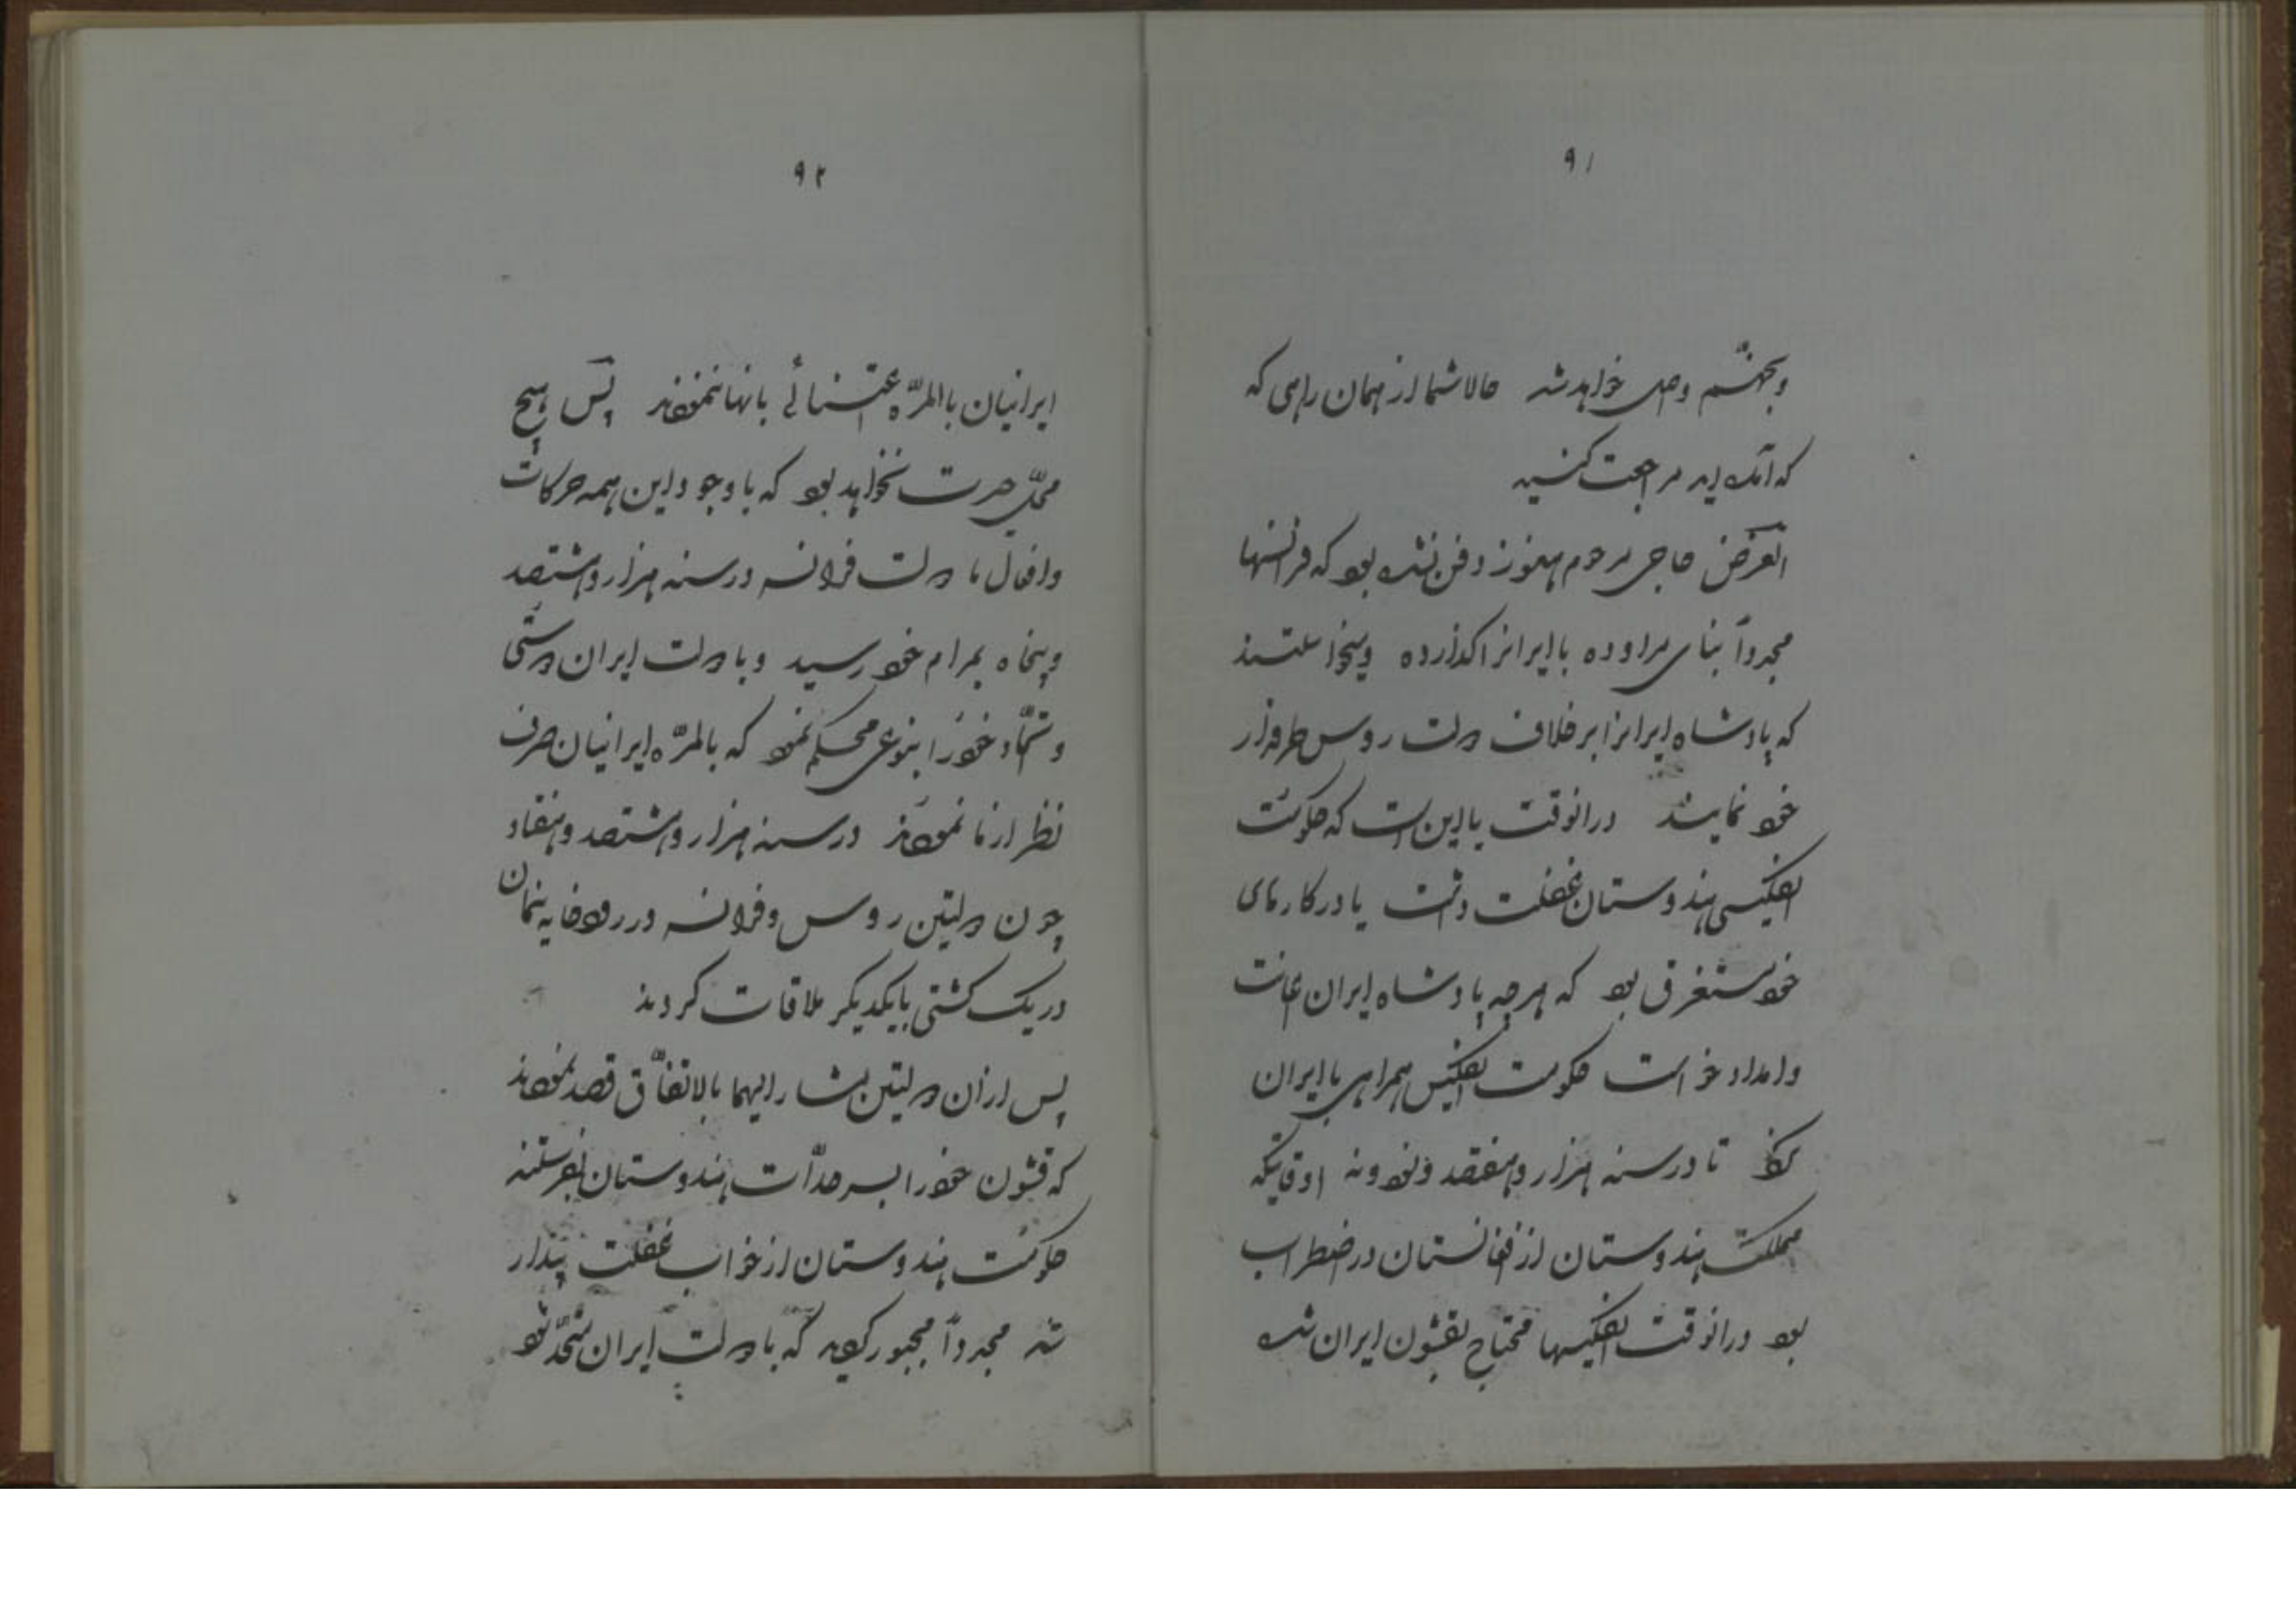 ۹۱
و بجهنّم واصل خواهد شد حالا شما از همان راهی که
که آمده اید مراجعت کنید
الغرض حاجی مرحوم هنوز دفن نشده بود که فرانسها
مجدداً بنای مراوده با ایران را گذارده و میخواستند
که پادشاه ایران را بر خلاف دولت روس طرفدار
خود نمایند در انوقت یا این است که حکومت
انگلیسی هندوستان غفلت داشت یا در کارهای
خود مستغرق بود که هر چه پادشاه ایران اعانت
و امداد خواست حکومت انگلیس همراهی با ایران
نکرد تا در سنه هزار و هفتصد و نود و نه اوقاتیکه
مملکت هندوستان از افغانستان در اضطراب
بود در انوقت انگلیسها محتاج بقشون ایران شده
۹۲
ایرانیان بالمرّه اعتنائی بانها ننمودند پس هیچ
محلّ حیرت نخواهد بود که با وجود این همه حرکات
و افعال ما دولت فرانسه در سنه هزار و هشتصد
و پنجاه بمرام خود رسید و با دولت ایران دوستی
و اتّحاد خود را بنوعی محکم نمود که بالمرّه ایرانیان صرف
نظر از ما نمودند در سنه هزار و هشتصد و هفتاد
چون دولتین روس و فرانسه در رودخانه نیمان
در یک کشتی با یکدیگر ملاقات کردند
پس از ان دولتین مشار الیهما بالاتفّاق قصد نمودند
که قشون خود را بسرحدّات هندوستان بفرستند
حکومت هندوستان از خواب غفلت بیدار
شد مجدداً مجبور گردید که با دولت ایران متّحد شود